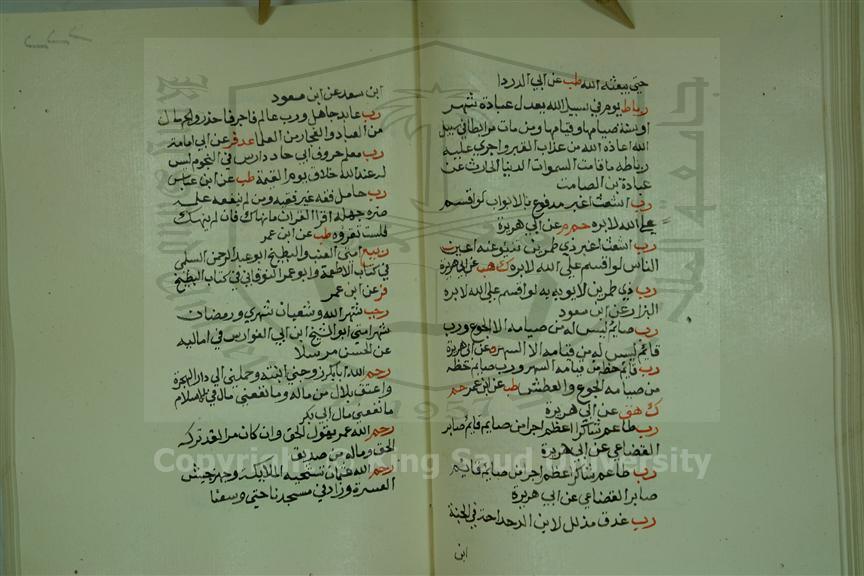 حتى يبعثه الله طب عن ابي الدردا
رباط يوم في سبيل الله يعدل عبادة شهر
او سنة صيامها وقيامها ومن مات مرابطا في سبيل
الله اعاذه الله من عذاب القبر واجري عليه
رباطه ما قامت السموات الدنيا الحارث عن
عبادة بن الصامت
رب اشعث اغبر مدفوع بالابواب لو اقسم
على الله لابره حم م عن ابي هريرة
رب اشعث اغبر ذي طمرين تنبو عنه اعين
الناس لو اقسم على الله لابره ك هب عن ابي هريرة
رب ذي طمرين لا يوبه به لو اقسم على الله لابره
البزار عن ابن مسعود
رب صايم ليس له من صيامه الا الجوع ورب
قايم ليس له من قيامه الا السهر ه عن ابي هريرة
رب قايم حظه من قيامه السهر ورب صايم حظه
من صيامه الجوع والعطش طب عن ابن عمر حم
ك هق عن ابي هريرة
رب طاعم شاكر اعظم اجرا من صايم قايم صابر
القضاعي عن ابي هريرة
رب طاعم شاكر اعظم اجر من صايم قايم
صابر القضاعي عن ابي هريرة
رب عذق مذلل لابن الدحداحة في الجنة
ابن
ابن سعد عن ابن مسعود
رب عابد جاهل ورب عالم فاجر فاحذروا الجهال
من العباد والفجار من العلما عد فر عن ابي امامة
رب معلم حروف ابي جاد دارس في النجوم ليس
له عند الله خلاق يوم القيمة طب عن ابن عباس
رب حامل فقه غير فقيه ومن لم ينفعه علمه
ضره جهله اقرا القران ما نهاك فان لم ينهك
فلست تقروه طب عن ابن عمر
ربيع امتي العنب والبطيخ ابو عبد الرحمن السلمي
في كتاب الاطعمة وابو عمر النوقاني في كتاب البطيخ
فر عن ابن عمر
رجب شهر الله وشعبان شهري ورمضان
شهر امتي ابو الشيخ ابن ابي الفوارس في اماليه
عن الحسن مرسلا
رحم الله ابا بكر زوجني ابنته وحملني الى دار الهجرة
واعتق بلال من ماله وما نفعني مال في الاسلام
ما نفعني مال ابي بكر
رحم الله عمر يقول الحق وان كان مرا لقد تركه
الحق وماله من صديق
رحم الله عثمان تستحيه الملايكة وجهز جيش
العسرة وزاد في مسجدنا حتى وسعنا
Copyright © King Saud University
1957